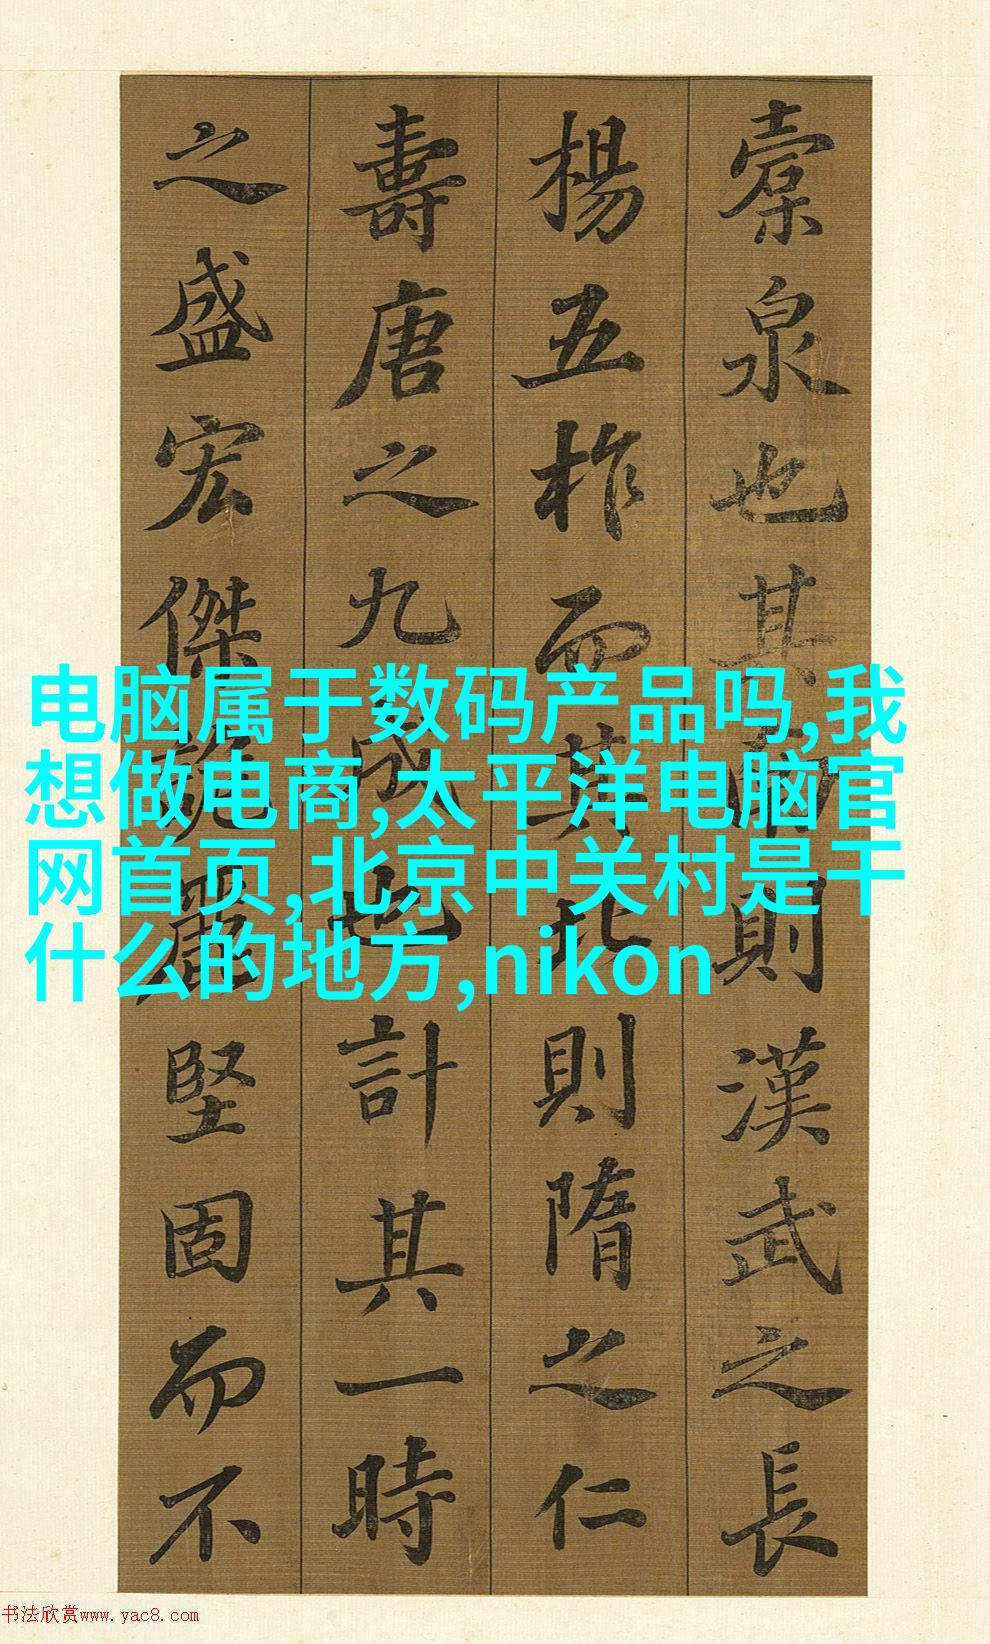 橐泉也其南則漢武之長
楊五柞而其北則隋之仁
壽唐之九成也計其一時
之盛宏傑詭麗堅固而不
电脑属于数码产品吗,我
想做电商,太平洋电脑官
网首页,北京中关村是干
什么的地方,nikon
书法欣赏www.yac8.com